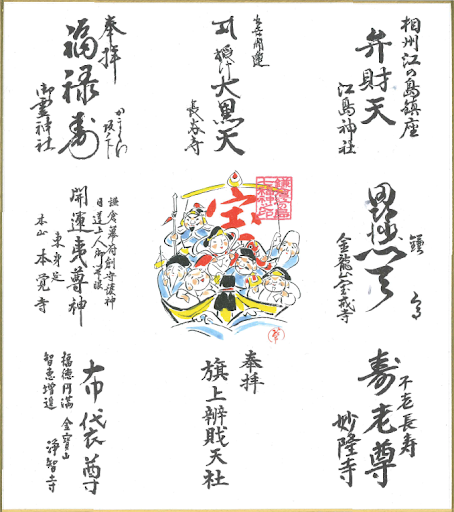 相州江の島鎮座
弁財天
江島神社
出世開運
授け大黒天
長谷寺
奉拝
福禄寿
かまくら
坂ノ下
御霊神社
鎌倉
毘沙門天
金龍山宝戒寺
宝
鎌倉幕府創守護神
日蓮上人御首途
開運夷尊神
東身延
本山 本覚寺
不老長寿
寿老尊
妙隆寺
奉拝
旗上辨財天社
布袋尊
福徳円満 金宝山
智恵増進 浄智寺